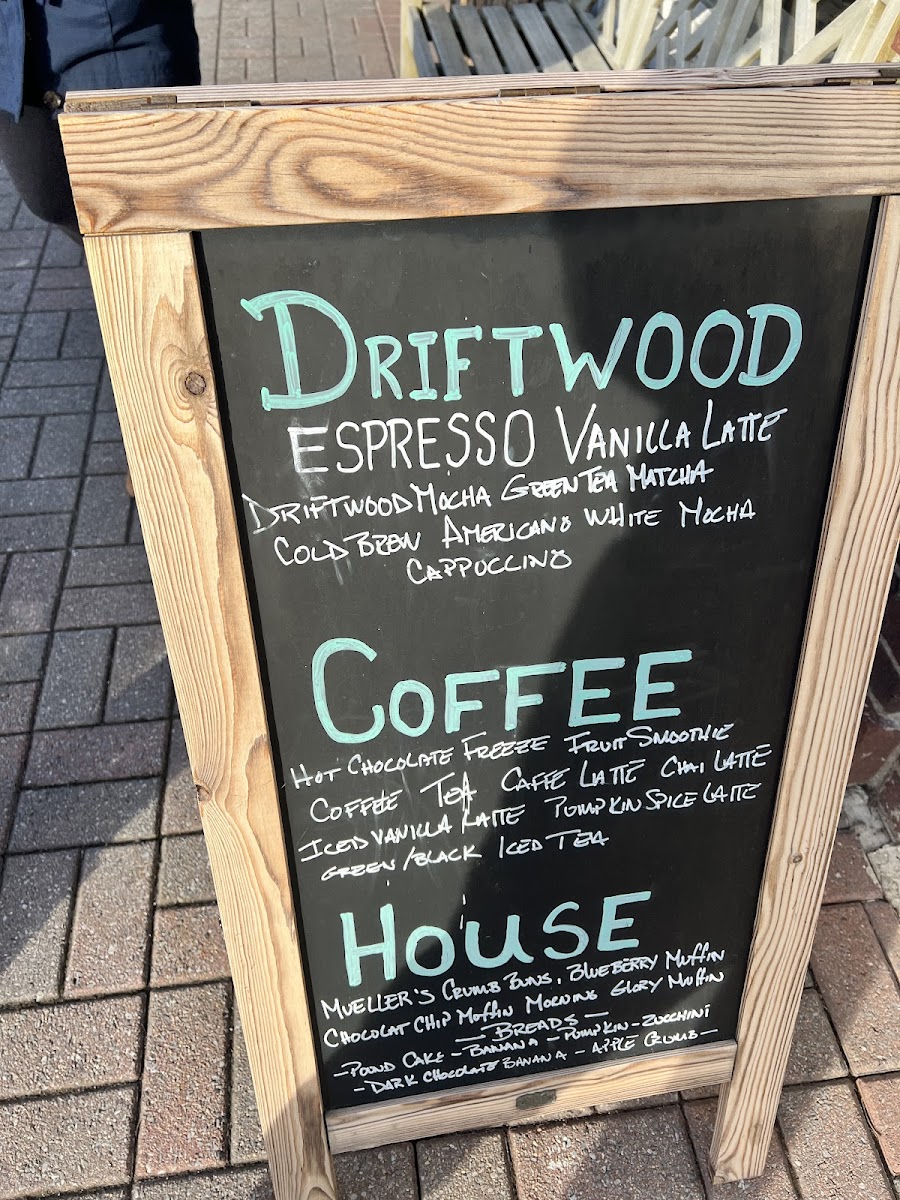 DRIFTWOOD
ESPRESSO VANILLA LATTE
DRIFTWOOD MOCHA GREEN TEA MATCHA
COLD BREW AMERICANO WHITE MOCHA
CAPPUCCINO
COFFEE
HOT CHOCOLATE FREEZE FRUIT SMOOTHIE
COFFEE TEA CAFFE LATTE CHAI LATTE
ICED VANILLA LATTE PUMPKIN SPICE LATTE
GREEN/BLACK ICED TEA
HOUSE
MUELLER'S CRUMB BUNS, BLUEBERRY MUFFIN
CHOCOLAT CHIP MUFFIN MORNING GLORY MUFFIN
— BREADS —
— POUND CAKE — BANANA — PUMPKIN — ZUCCHINI
— DARK CHOCOLATE BANANA — APPLE CRUMB —